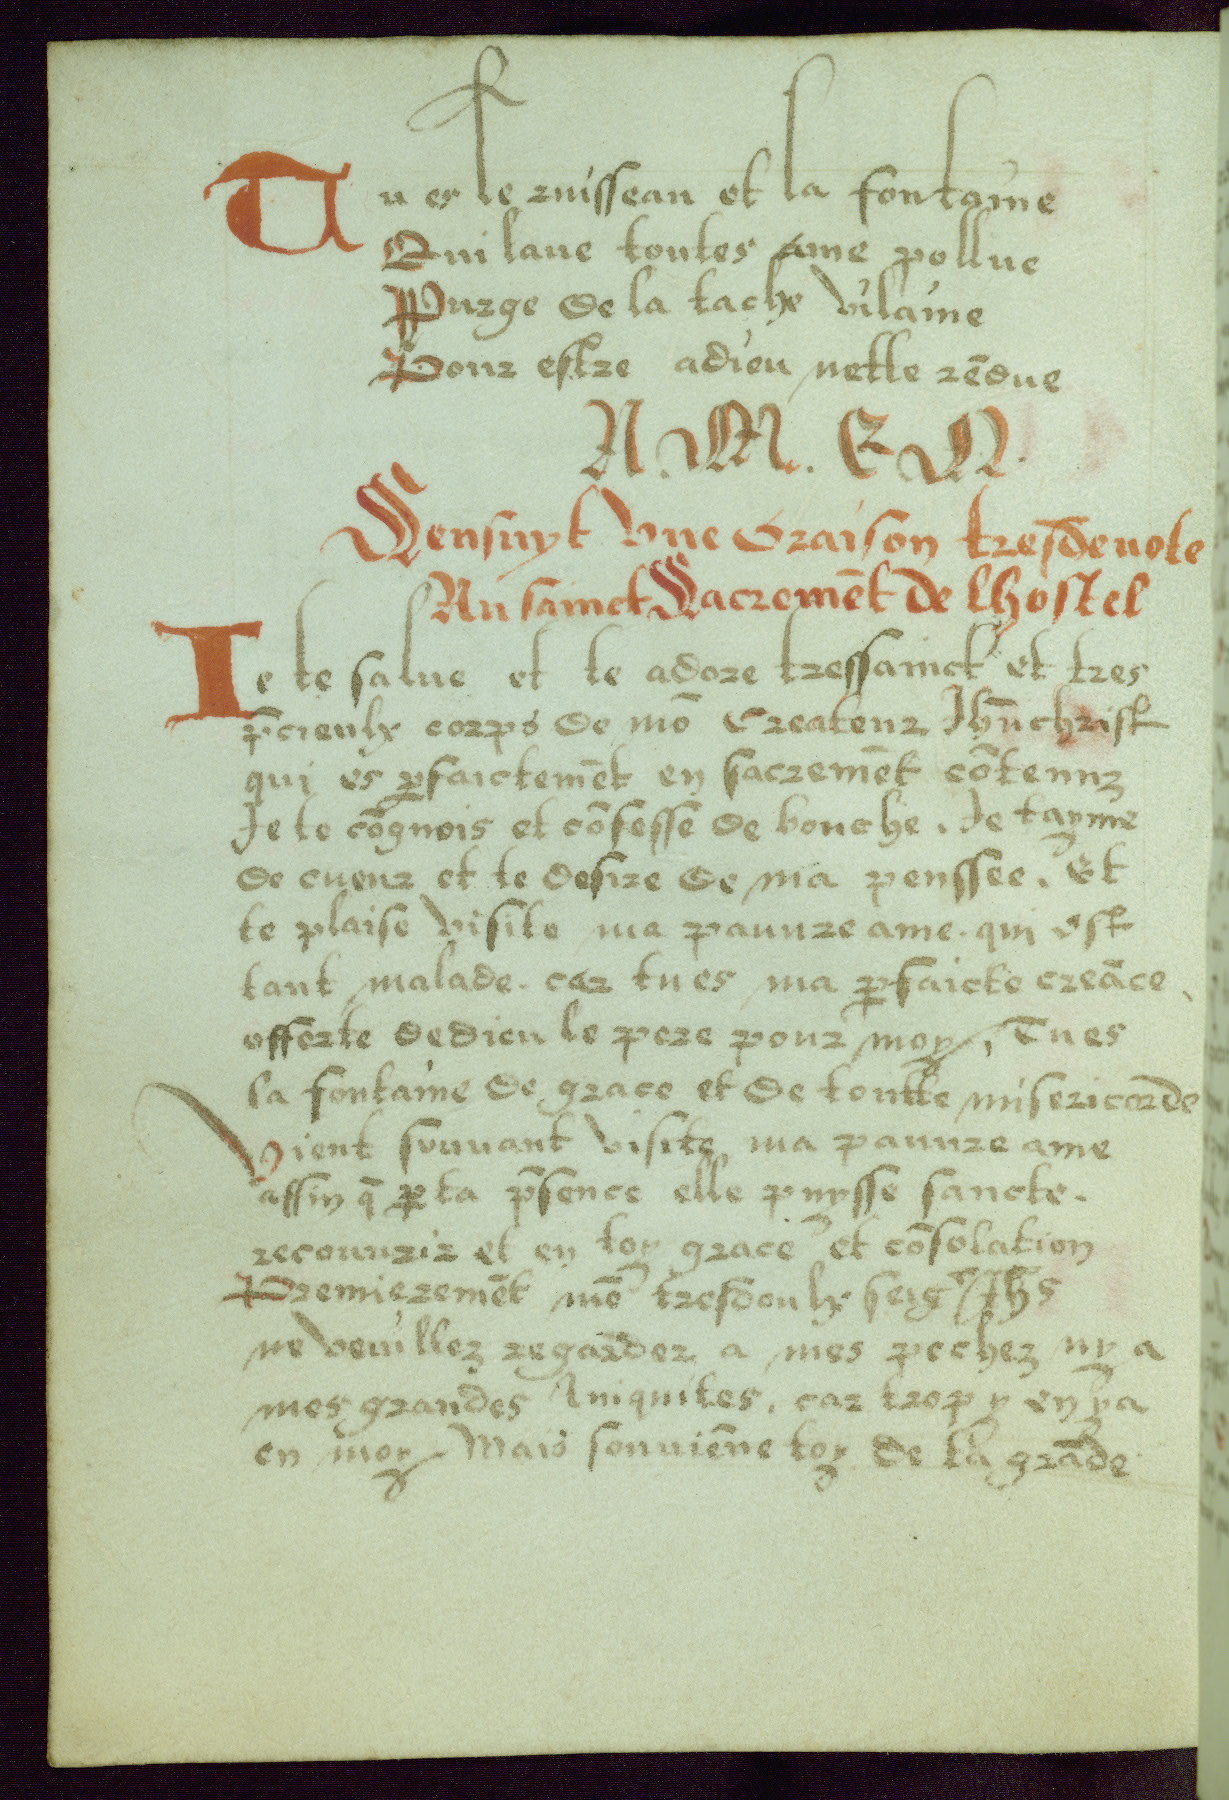 Tu es le ruisseau et la fontaine
Qui laue toutes ame pollue
Purge de la tache vilaine
Pour estre adieu nette rēdue
A.M.EN.
Sensuyt vne Oraison tresdeuote
Au sainct Sacremēt de lhostel
Ie te salue et te adore tressainct et tres
p̄cieulx corps de mō Createur Jhūchrist
qui es ꝑfaictemēt en sacremēt cōtenuz
Je te cōgnois et cōfesse de bouche. Je tayme
de cueur et te desire de ma penssee. Et
te plaise visite ma pauure ame. qui est
tant malade. car tu es ma ꝑfaicte creāce
offerte de dieu le pere pour moy, Tu es
la fontaine de grace et de toutte misericorde
Vient souuant visite ma pauure ame
affin q̄ ꝑ ta p̄sence elle puysse sancte.
recouurir et en toy grace et cōsolation
Premieremēt mō tresdoulx seigr Jhs
ne veuillez regarder a mes pechez ny a
mes grandes Iniquites. car trop y en ya
en moy Mais souuiēne toy de ta grāde